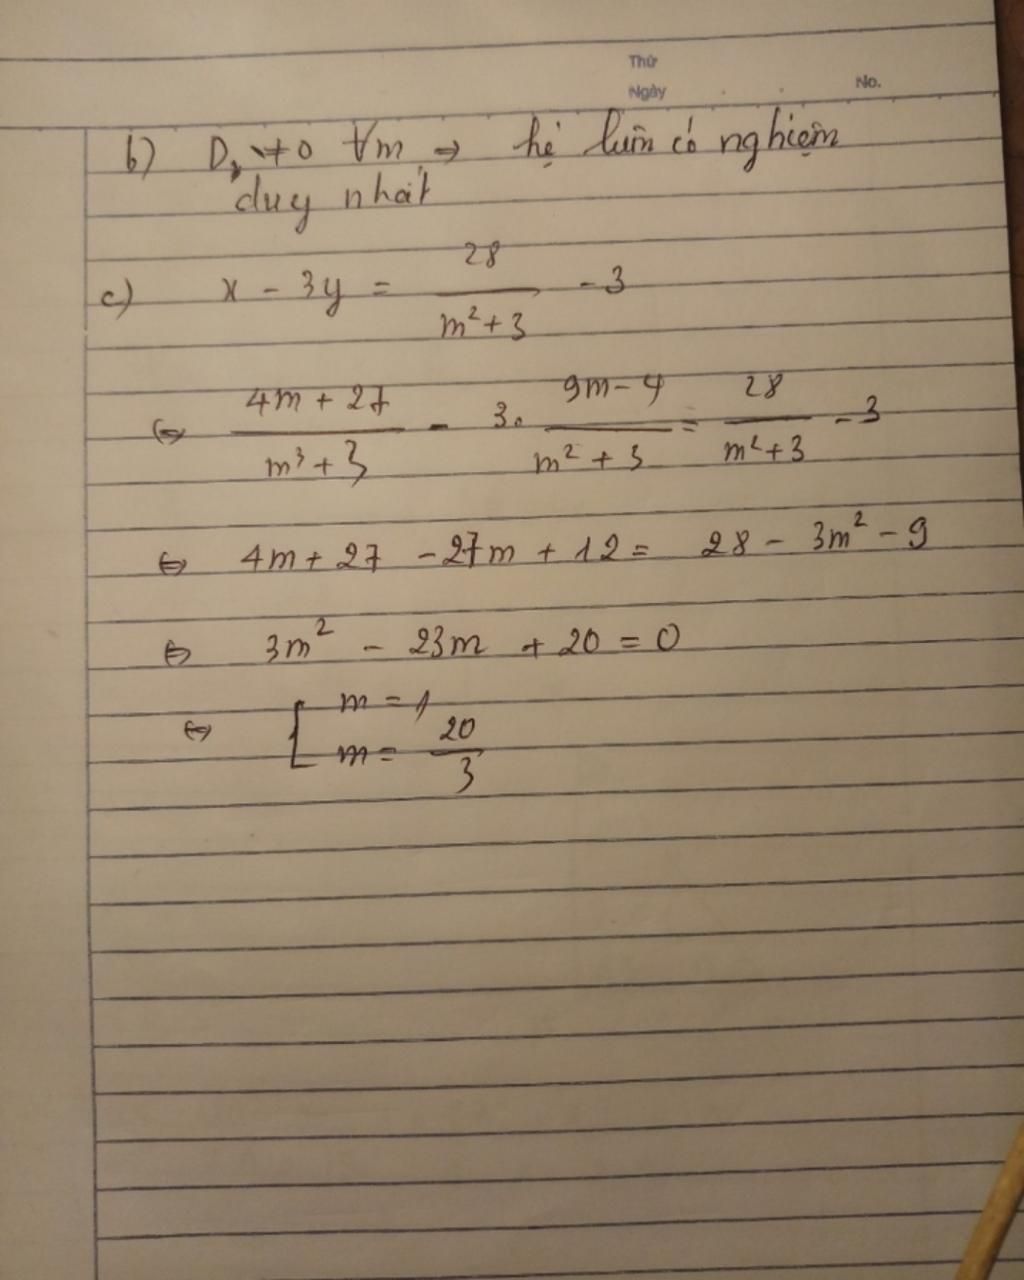 Thứ
Ngày
No.
b) D ≠ 0 ∀m → hệ luôn có nghiệm
duy nhất
c) x - 3y = \frac{28}{m^2+3} - 3
⇔ \frac{4m + 27}{m^3 + 3} - 3. \frac{9m - 4}{m^2 + 3} = \frac{28}{m^2+3} - 3
⇔ 4m + 27 - 27m + 12 = 28 - 3m^2 - 9
⇔ 3m^2 - 23m + 20 = 0
⇔ [ m = 1
m = \frac{20}{3}